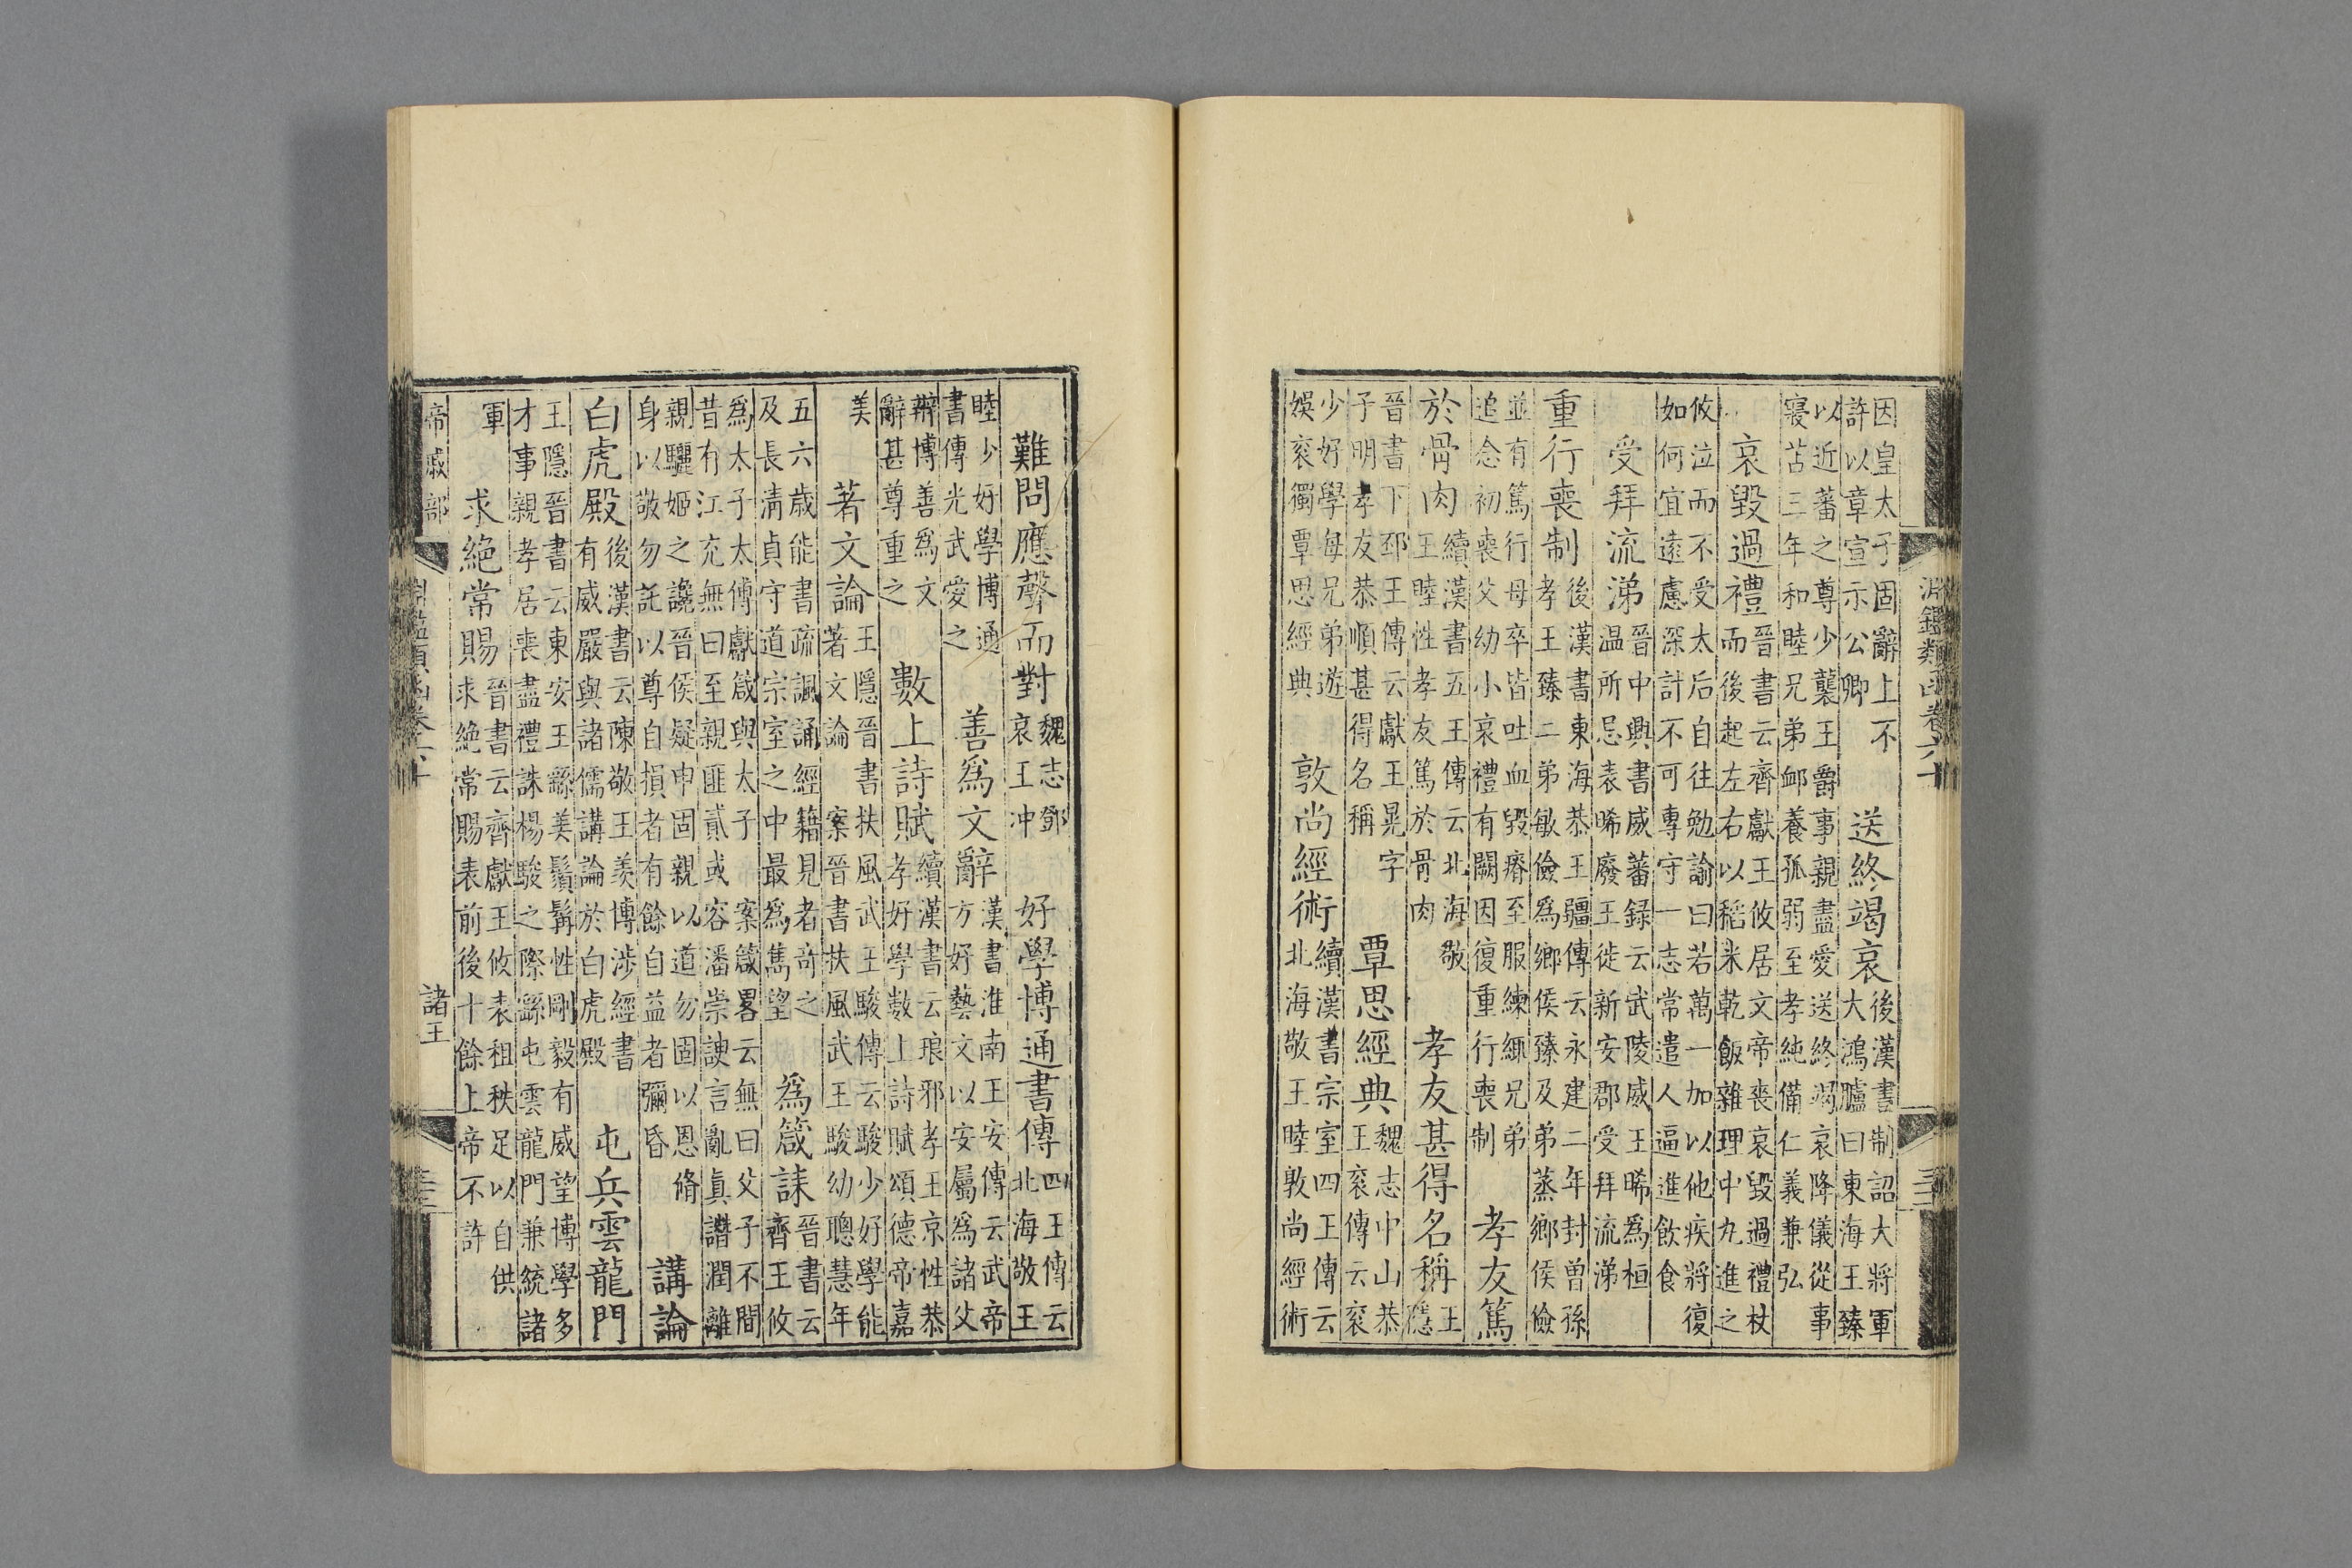 淵鑑類函卷六十
因皇太子固辭上不
許以章宣示公卿
送終竭哀
後漢書制詔大將軍
大鴻臚曰東海王臻
以近蕃之尊少襲王爵事親盡愛送終竭哀降儀從事
寢苫三年和睦兄弟䘏養孤弱至孝純備仁義兼弘
哀毀過禮
晉書云齊獻王攸居文帝喪哀毀過禮杖
而後起左右以稻米乾飯雜理中丸進之
攸泣而不受太后自往勉諭曰若萬一加以他疾將復
如何宜遠慮深計不可專守一志常遣人逼進飲食
受拜流涕
晉中興書威蕃録云武陵威王晞為桓
温所忌表晞廢王徙新安郡受拜流涕
重行喪制
後漢書東海恭王疆傳云永建二年封曾孫
孝王臻二弟敏儉為鄉侯臻及弟蒸鄉侯儉
並有篤行母卒皆吐血毀瘠至服練緦兄弟
追念初喪父幼小哀禮有闕因復重行喪制
孝友篤
於骨肉
續漢書五王傳云北海敬
王睦性孝友篤於骨肉
孝友甚得名稱
王
隱
晉書下邳王傳云獻王晃字
子明孝友恭順甚得名稱
覃思經典
魏志中山恭
王衮傳云衮
少好學每兄弟遊
娛衮獨覃思經典
敦尚經術
續漢書宗室四王傳云
北海敬王睦敦尚經術
難問應聲而對
魏志鄧
哀王冲
好學博通書傳
四王傳云
北海敬王
睦少好學博通
書傳光武愛之
善為文辭
漢書淮南王安傳云武帝
方好藝文以安屬為諸父
辯博善為文
辭甚尊重之
數上詩賦
續漢書云琅邪孝王京性恭
孝好學數上詩賦頌德帝嘉
美
著文論
王隱晉書扶風武王駿傳云駿少好學能
著文論 案晉書扶風武王駿幼聰慧年
五六歲能書疏諷誦經籍見者奇之
及長清貞守道宗室之中最為雋望
為箴誄
晉書云
齊王攸
為太子太傅獻箴與太子 案箴畧云無曰父子不間
昔有江充無曰至親匪貳或容潘崇諛言亂真譖潤離
親驪姬之讒晉侯疑申固親以道勿固以恩脩
身以敬勿託以尊自損者有餘自益者彌昏
講論
白虎殿
後漢書云陳敬王羨博涉經書
有威嚴與諸儒講論於白虎殿
屯兵雲龍門
王隱晉書云東安王繇美鬚髯性剛毅有威望博學多
才事親孝居喪盡禮誅楊駿之際繇屯雲龍門兼統諸
軍
求絕常賜
晉書云齊獻王攸表租秩足以自供
求絕常賜表前後十餘上帝不許
帝戚部
諸王